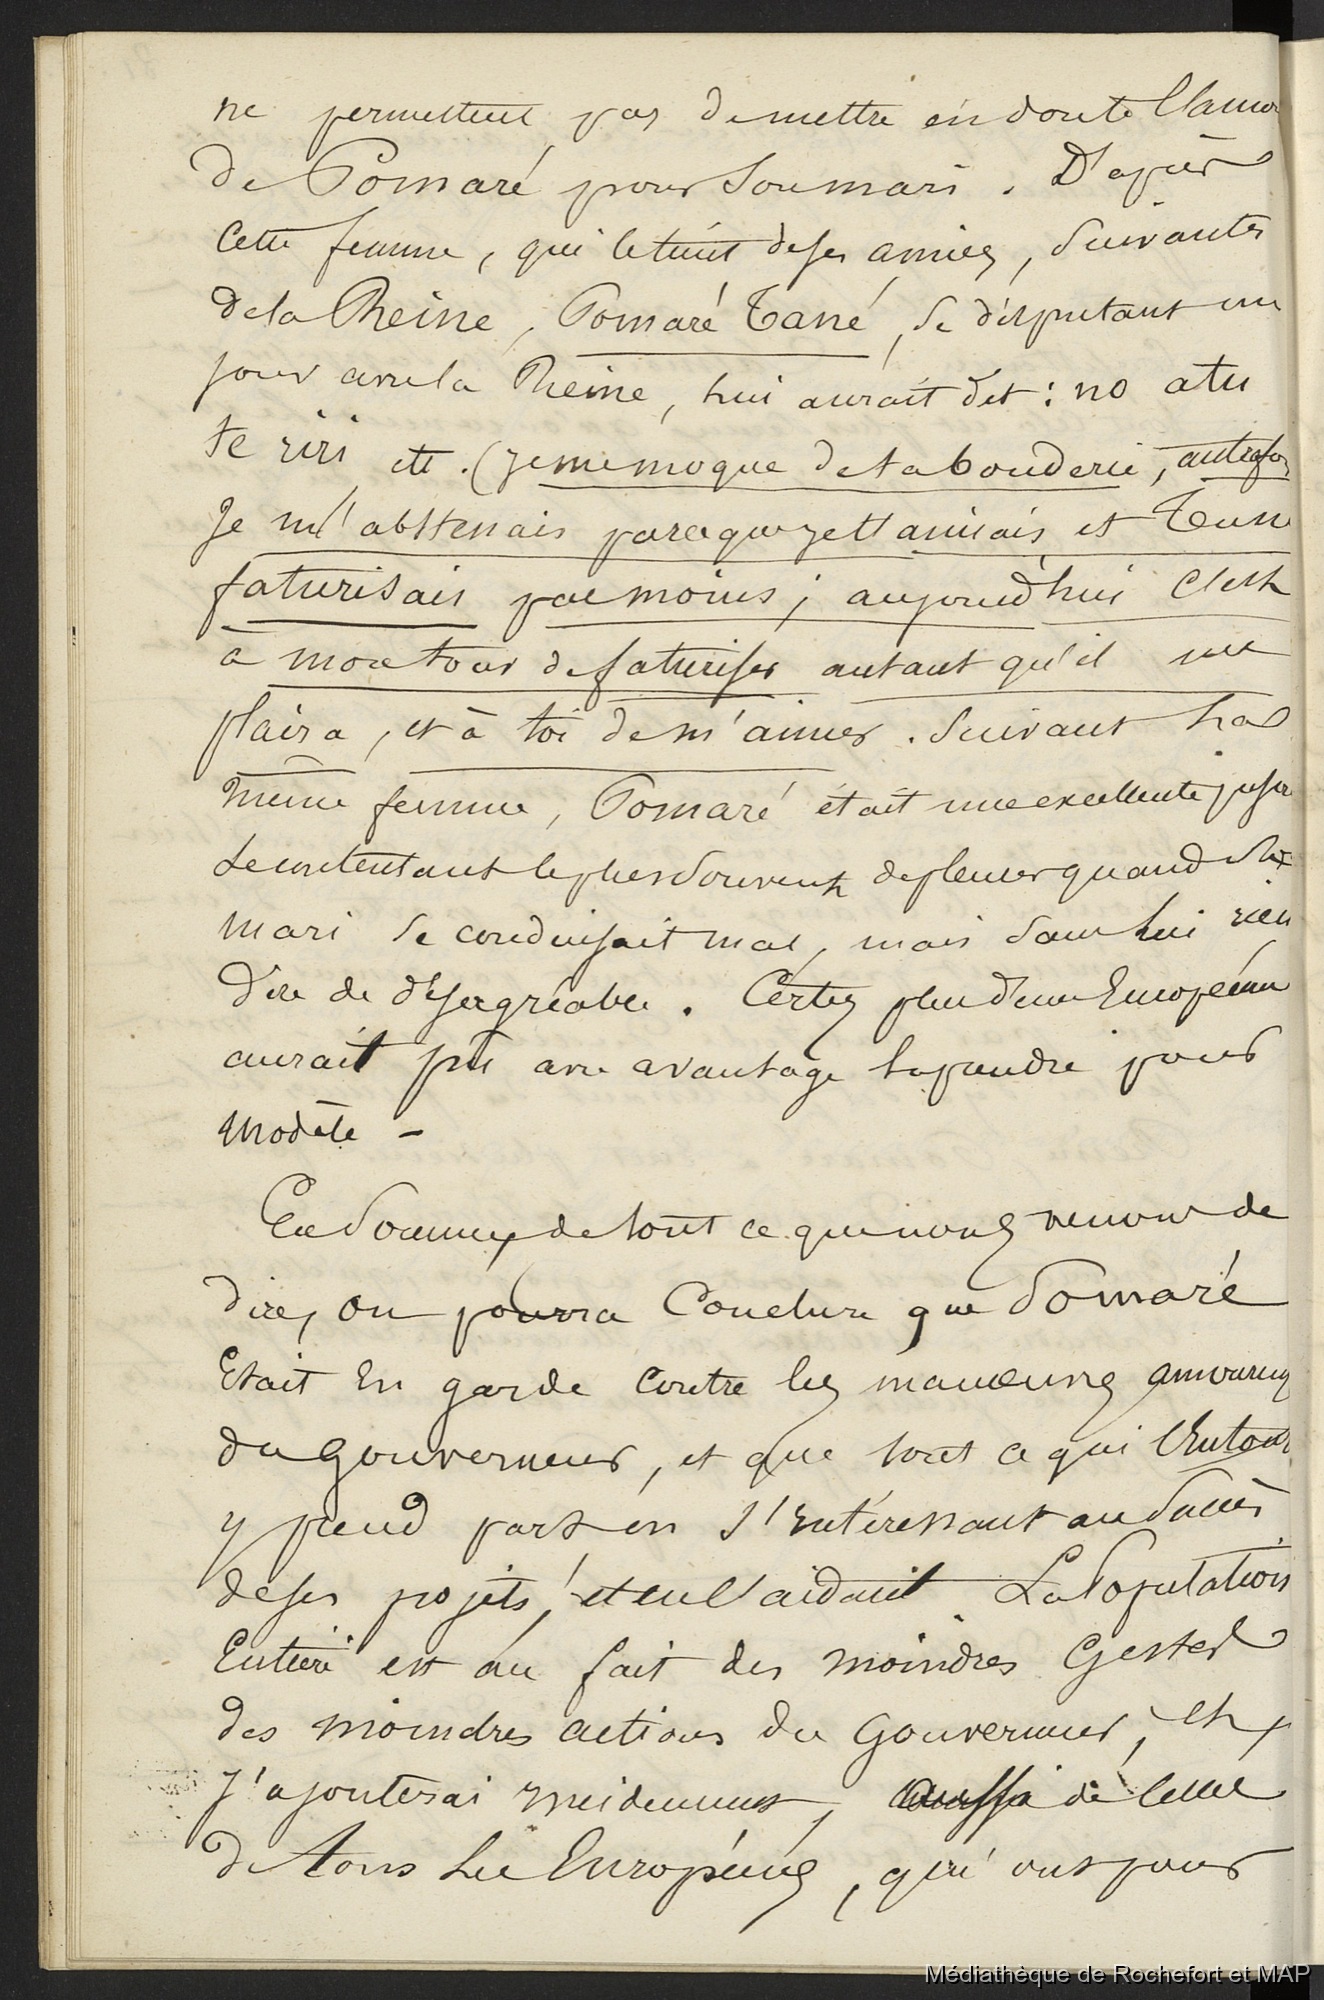 ne permettent pas de mettre en doute l'amour
de Pomaré pour son mari. D'après
cette femme, qui le tient de ses amies, suivantes
de la Reine, Pomaré Tané, se disputant un
jour avec la Reine, lui aurait dit : no atu
te riri etc. (je me moque de ta bouderie, autrefois
je m'abstenais parce que je t'aimais et tu ne
faturisais pas moins; aujourd'hui c'est
à mon tour de faturiser autant qu'il me
plaira, et à toi de m'aimer. Suivant la
même femme, Pomaré était une excellente
se contentant le plus souvent de pleurer quand son
mari se conduisait mal, mais sans lui rien
dire de désagréable. Certes plus d'une Européenne
aurait pu avec avantage la prendre pour
modèle -
En somme, de tout ce que nous venons de
dire, on pourra conclure que Pomaré
était en garde contre les manœuvres amoureuses
du gouverneur, et que tout ce qui l'entoure
y prend part en s'intéressant au succès
de ses projets, et en l'aidant La population
entière est au fait des moindres gestes
des moindres actions du gouverneur, et
j'ajouterai, aussi de celles
de tous les Européens, qui ont pour
Médiathèque de Rochefort et MAP